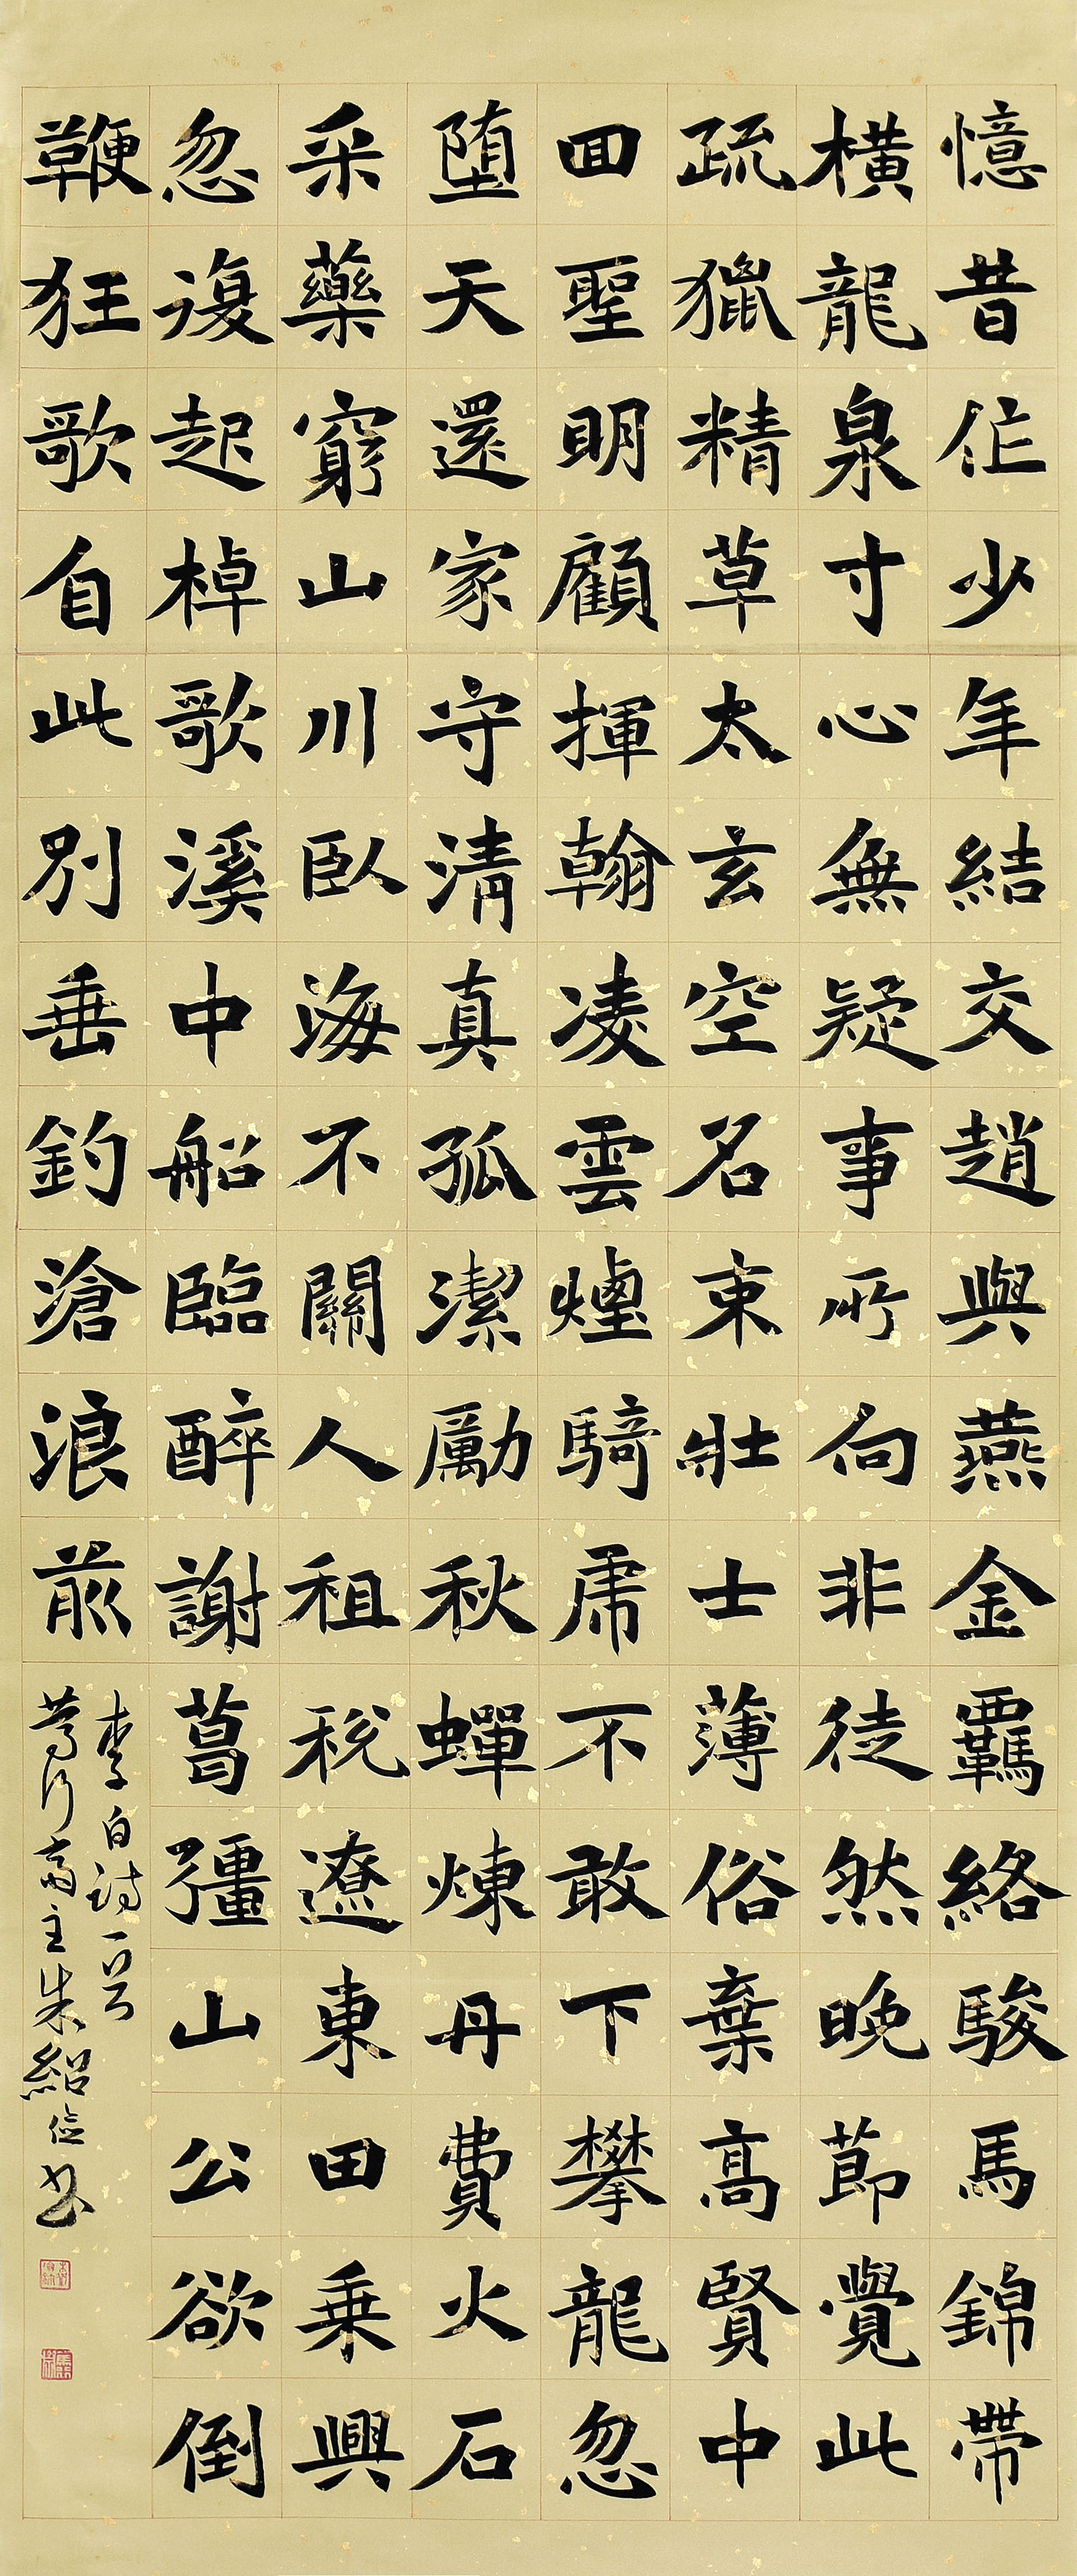 憶昔作少年結交趙與燕金羈絡駿馬錦帶
橫龍泉寸心無疑事所向非徒然晚節覺此
疏獵精草太玄空名束壯士薄俗棄高賢中
回聖明顧揮翰凌雲煙騎虎不敢下攀龍忽
墮天還家守清真孤潔勵秋蟬煉丹費火石
采藥窮山川臥海不關人租稅遼東田乘興
忽復起棹歌溪中船臨醉謝葛彊山公欲倒
鞭狂歌自此別垂釣滄浪前
李白詩一首
主朱紹